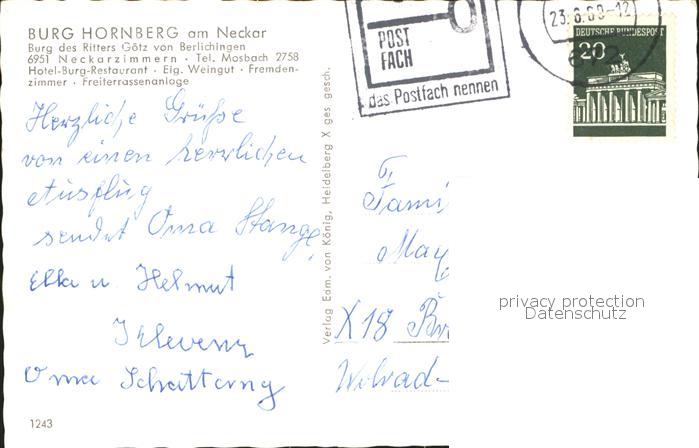 BURG HORNBERG am Neckar
Burg des Ritters Götz von Berlichingen
6951 Neckarzimmern · Tel. Mosbach 2758
Hotel-Burg-Restaurant · Eig. Weingut · Fremden-
zimmer · Freiterrassenanlage
Herzliche Grüße
von einen herrlichen
Ausflug
sendet Oma Stange,
Ella u. Helmut
Oma
1243
Verlag Edm. von König, Heidelberg X ges. gesch.
POST
FACH
das Postfach nennen
23.6.68-12
DEUTSCHE BUNDESPOST
20
Fami
May
X18 Br
privacy protection
Datenschutz